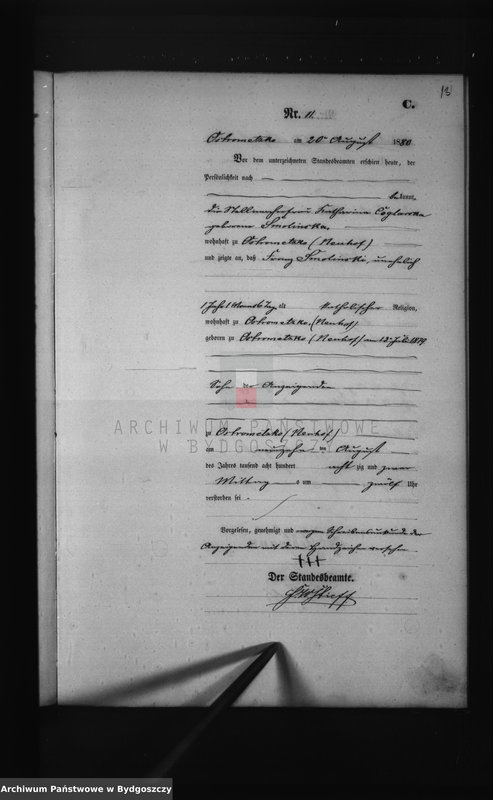 13
C.
Nr. 11.
Ostrometzko am 20ten August 1880
Vor dem unterzeichneten Standesbeamten erschien heute, der
Persönlichkeit nach
bekannt,
die Stellmacherfrau Katharina
geborene Smolinska,
wohnhaft zu Ostrometzko (Neuhof)
und zeigte an, daß Franz Smolinski, unehelich
1 Jahr 1 Monat 6 Tag alt katholischer Religion,
wohnhaft zu Ostrometzko, (Neuhof)
geboren zu Ostrometzko (Neuhof) am 13ten Juli 1879
Sohn der Anzeigenden
ARCHIWUM PAŃSTWOWE
W BYDGOSZCZY
zu Ostrometzko (Neuhof)
am neunzehn ten August
des Jahres tausend acht hundert acht zig und zwar
Mittag s um zwölf Uhr
verstorben sei.
Vorgelesen, genehmigt und wegen Schreibensunkunde der
Anzeigenden mit deren Handzeichen versehen
+++
Der Standesbeamte.
Archiwum Państwowe w Bydgoszczy